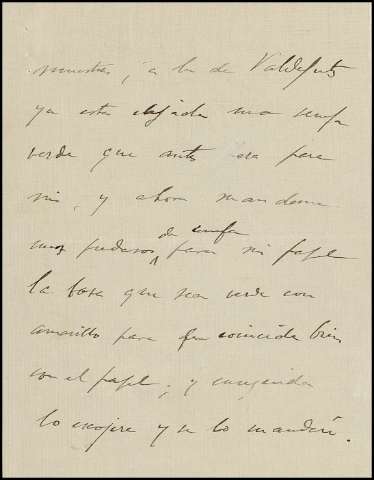 muestras, a la de Valdefuts
ya esta elejida una
verde que antes era para
mi, y ahora mandeme
unos pedasos de para mi papel
la tosa que sea verde con
amarillo para que coincida bien
con el papel, y enseguida
lo escojere y se lo mandaré.